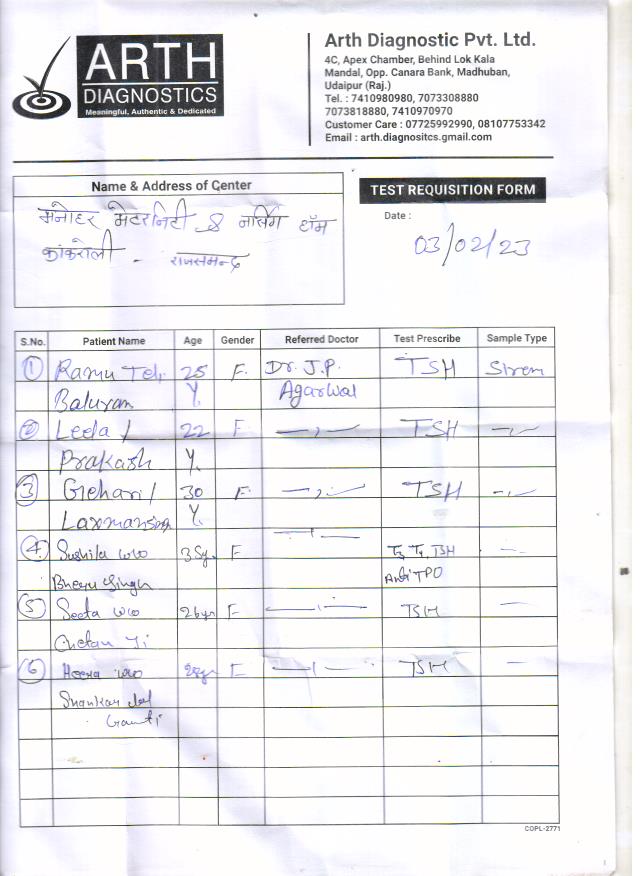 ARTH
DIAGNOSTICS
Meaningful, Authentic & Dedicated
Arth Diagnostic Pvt. Ltd.
4C, Apex Chamber, Behind Lok Kala
Mandal, Opp. Canara Bank, Madhuban,
Udaipur (Raj.)
Tel. : 7410980980, 7073308880
7073818880, 7410970970
Customer Care : 07725992990, 08107753342
Email : arth.diagnositcs.gmail.com
Name & Address of Center
मनोहर मेटरनिटी & नर्सिंग हॉम
कांकरोली - राजसमन्द
TEST REQUISITION FORM
Date :
03/02/23
S.No. Patient Name Age Gender Referred Doctor Test Prescribe Sample Type
1 Ramu Teli 25 F. Dr. J.P. TSH Sirem
Baluram Y. Agarwal
2 Leela / 22 F —,— TSH —,—
Prakash Y.
3 / 30 F —,— TSH —,—
Laxmansing Y.
4. Sushila w/o F —,— T3, T4, TSH —
Singh Anti TPO
5 Seeta w/o 26yr F —,— TSH —
Chetan Ji
6 Heera w/o F —,— TSH —
Shankar lal
COPL-2771